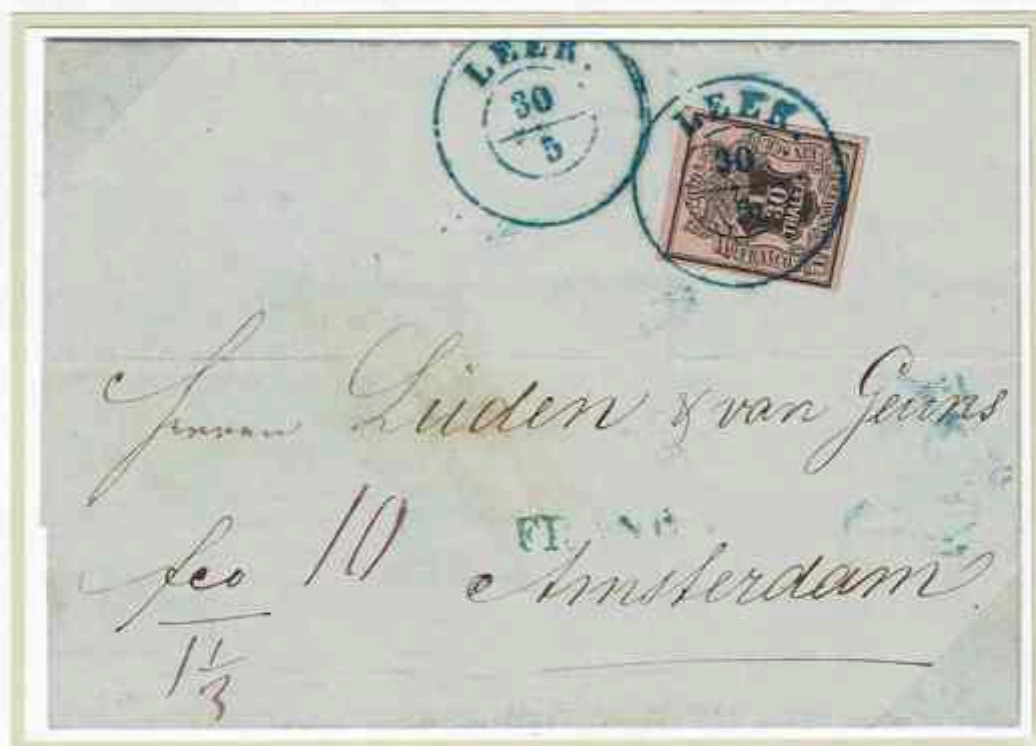 LEER.
30
5
LEER.
30
1
30
THALER
FRANCO
Herren Lüden & van Geuns
fco 10
1 1/3
Amsterdam